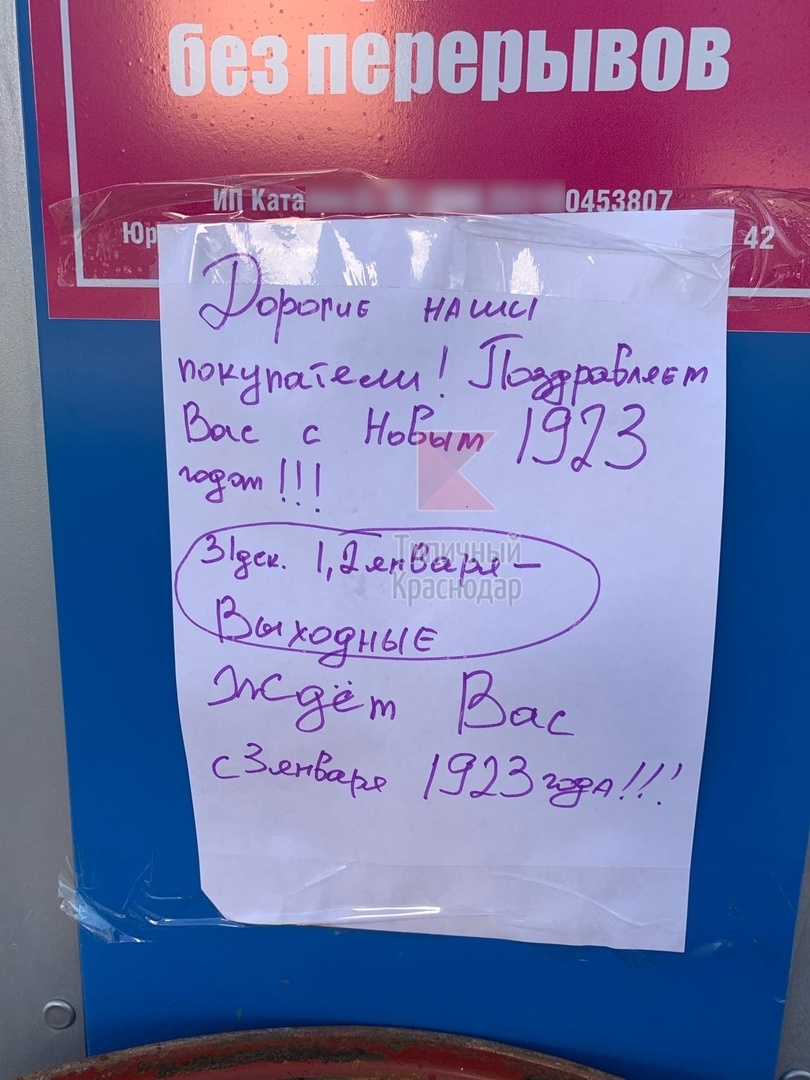 без перерывов
ИП Ката 0453807
Юр 42
Дорогие наши
покупатели! Поздравляем
Вас с Новым 1923
годом!!!
31 дек. 1, 2 января –
Выходные
Ждём Вас
с 3 января 1923 года!!!
Типичный
Краснодар